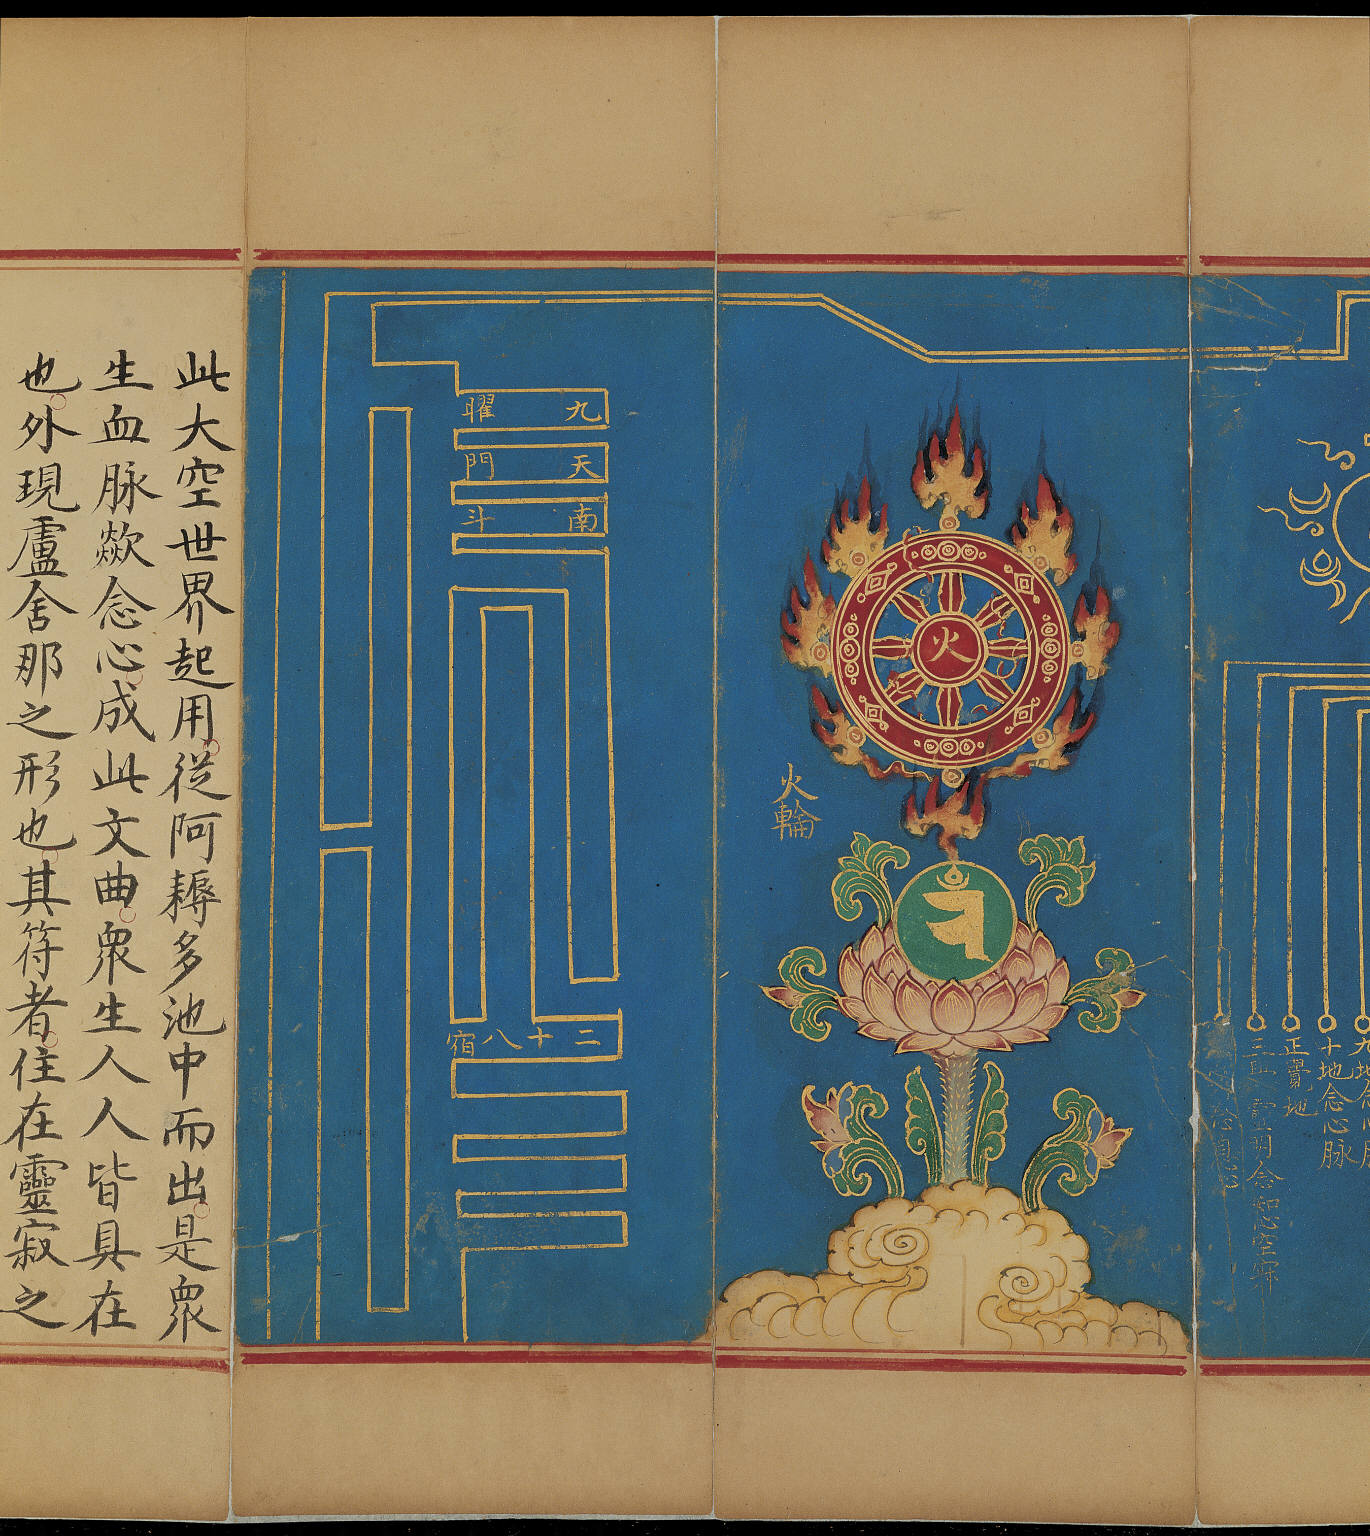 九地念心
十地念心脉
正覺地
靈明念知心空寂
火
火輪
九曜
天門
南斗
二十八宿
此大空世界起用從阿耨多池中而出是衆
生血脉歘念心成此文曲衆生人人皆具在
也外現盧舍那之形也其符者住在靈寂之